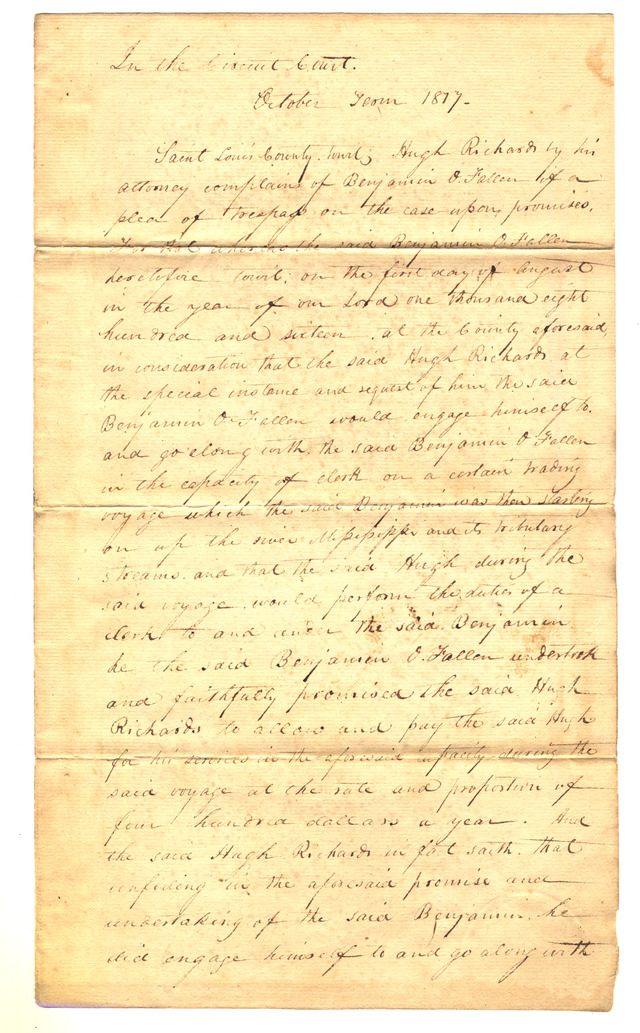 In the Circuit Court.
October Term 1817-
Saint Louis County. towit; Hugh Richards by his
attorney complains of Benjamin O.Fallen of a
plea of trespass on the case upon promises.
For that whereas the said Benjamin O.Fallen
heretofore towit; on the first day of August
in the year of our Lord one thousand eight
hundred and sixteen. at the County aforesaid,
in consideration that the said Hugh Richards at
the special instance and request of him the said
Benjamin O.Fallen would engage himself to.
and go along with. the said Benjamin O Fallen
in the capacity of clerk on a certain trading
voyage which the said Benjamin was then starting
on up the river Missisippi and its tributary
streams. and that the said Hugh during the
said voyage. would perform the duties of a
clerk to and under the said Benjamin
he the said Benjamin O.Fallen undertook
and faithfully promised the said Hugh
Richards to allow and pay the said Hugh
for his services in the aforesaid capacity during the
said voyage at the rate and proportion of
four hundred dollars a year. And
the said Hugh Richards in fact saith. that
confiding in the aforesaid promise and
undertaking of the said Benjamin. he
did engage himself to and go along with